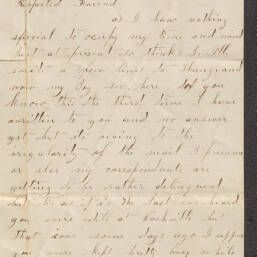 Respected Friend
as I have nothing
special to occupy my time and mind
just at present so thinks I Ill
write a few lines to
now my boy see here do you
know this the third time I have
written to you and no answer
yet but its owing to the
irregularity of the mail I presume
or else my corespondants are
getting to be rather delinquent
but be as it is The last we heard
you were still at Nashville but
That was some days ago I suppose
you were kept pretty busy